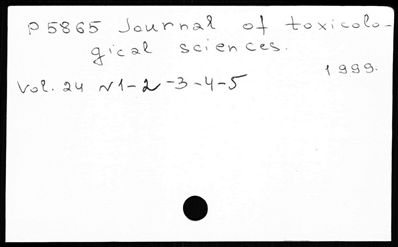 P5865 Journal of toxicolo-
gical sciences.
1999.
Vol. 24 N1-2-3-4-5